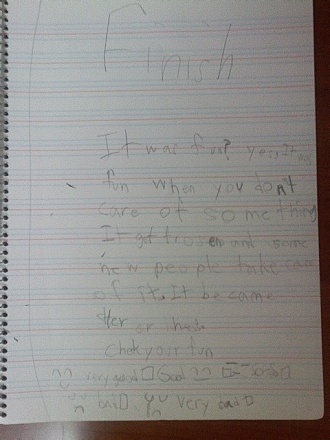 Finish
It was fun? yess It was
fun when you don't
care of something
It got and some
new people take care
of it. It became
or
Chek your fun
very good Good so-so
bad very bad